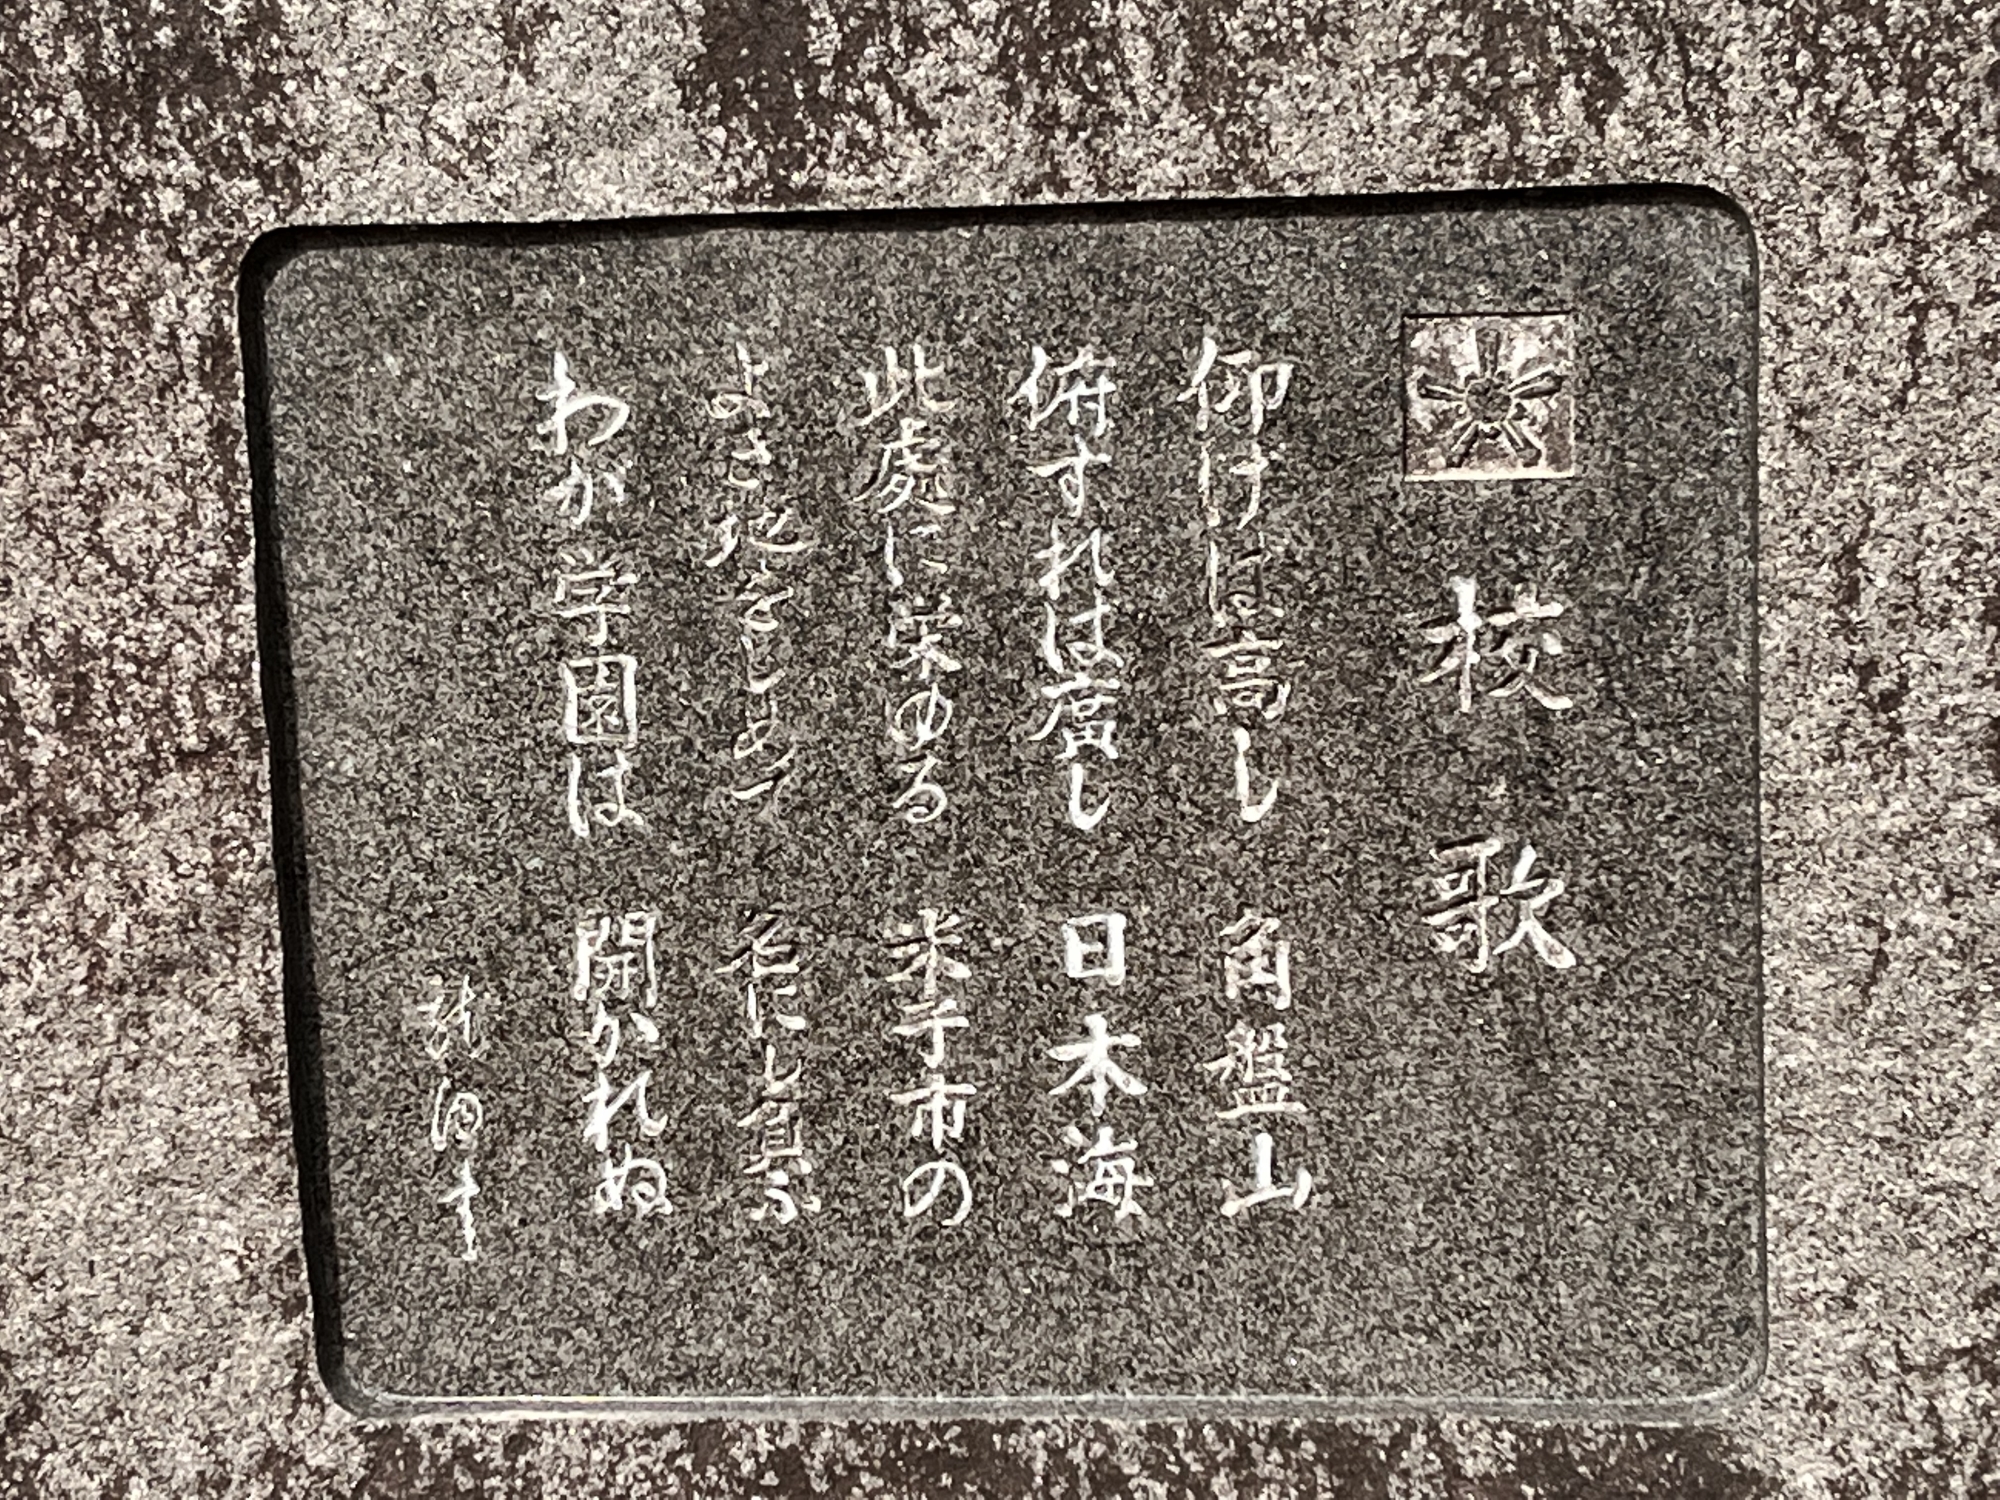 校歌
仰げば高し 角盤山
俯すれば廣し 日本海
此處に栄ゆる 米子市の
よき地をしめて 名にし負ふ
わが学園は 開かれぬ